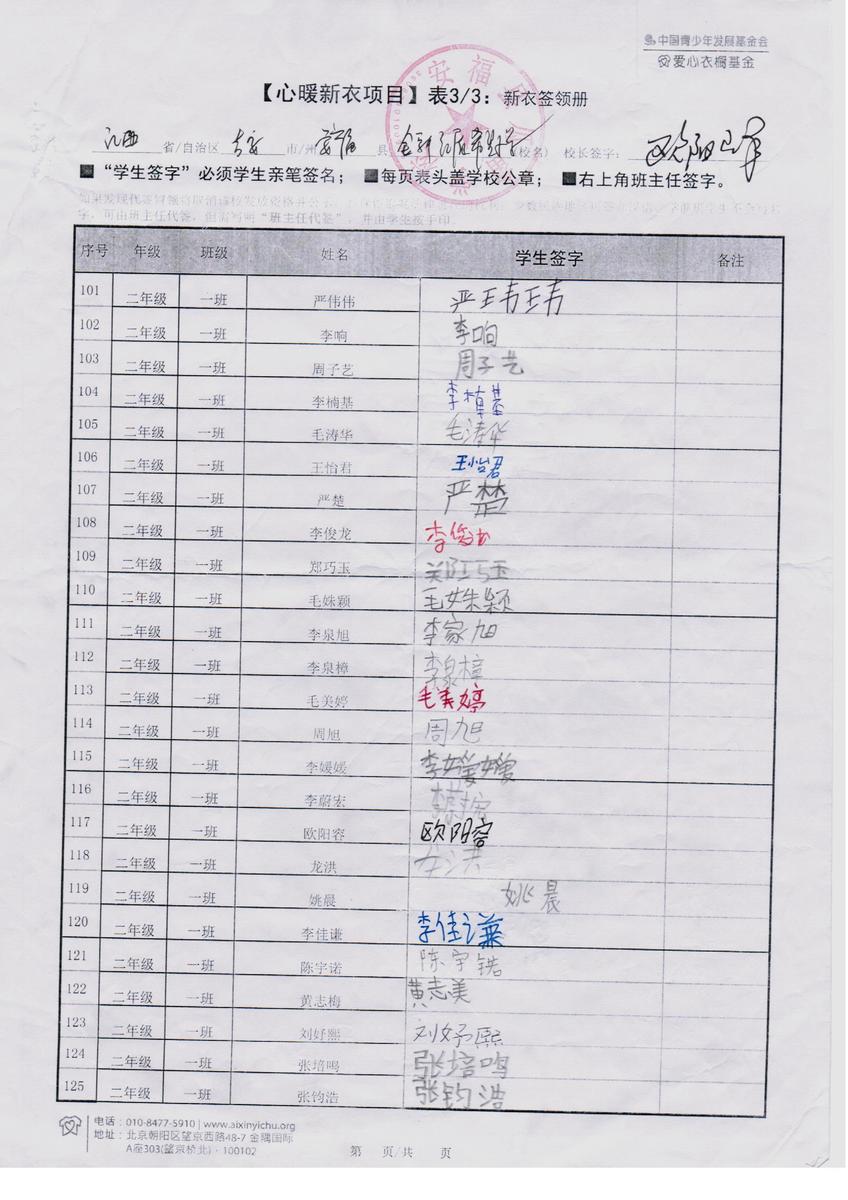 中国青少年发展基金会
爱心衣橱基金
【心暖新衣项目】表3/3：新衣签领册
江西 省/自治区 吉安 市/州 安福 县 (校名) 校长签字：
■“学生签字”必须学生亲笔签名；■每页表头盖学校公章；■右上角班主任签字。
字，可由班主任代签，但需写明“班主任代签”，并由学生按手印。
序号 年级 班级 姓名 学生签字 备注
101 二年级 一班 严伟伟 严伟伟
102 二年级 一班 李响 李响
103 二年级 一班 周子艺 周子艺
104 二年级 一班 李楠基 李楠基
105 二年级 一班 毛涛华 毛涛华
106 二年级 一班 王怡君 王怡君
107 二年级 一班 严楚 严楚
108 二年级 一班 李俊龙 李俊龙
109 二年级 一班 郑巧玉 郑巧玉
110 二年级 一班 毛姝颖 毛姝颖
111 二年级 一班 李泉旭 李家旭
112 二年级 一班 李泉樟 李泉樟
113 二年级 一班 毛美婷 毛美婷
114 二年级 一班 周旭 周旭
115 二年级 一班 李媛媛 李媛媛
116 二年级 一班 李蔚宏
117 二年级 一班 欧阳容 欧阳容
118 二年级 一班 龙洪 龙洪
119 二年级 一班 姚晨 姚晨
120 二年级 一班 李佳谦 李佳谦
121 二年级 一班 陈宇诺 陈宇锘
122 二年级 一班 黄志梅 黄志美
123 二年级 一班 刘妤熙 刘妤熙
124 二年级 一班 张培鸣 张培鸣
125 二年级 一班 张钧浩 张钧浩
电话：010-8477-5910 | www.aixinyichu.org
地址：北京朝阳区望京西路48-7 金隅国际
A座303(望京桥北)·100102
第 页/共 页